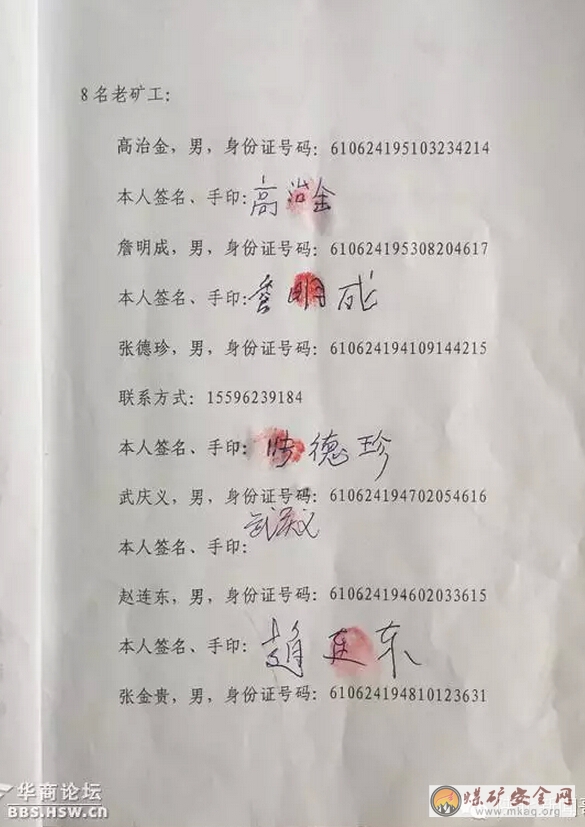 8名老矿工：
高治金，男，身份证号码：610624195103234214
本人签名、手印：高治金
詹明成，男，身份证号码：610624195308204617
本人签名、手印：詹明成
张德珍，男，身份证号码：610624194109144215
联系方式：15596239184
本人签名、手印：张德珍
武庆义，男，身份证号码：610624194702054616
武庆义
本人签名、手印：
赵连东，男，身份证号码：610624194602033615
本人签名、手印：趙连东
张金贵，男，身份证号码：610624194810123631
华商论坛
BBS.HSW.CN
煤矿安全网
www.mkaq.org